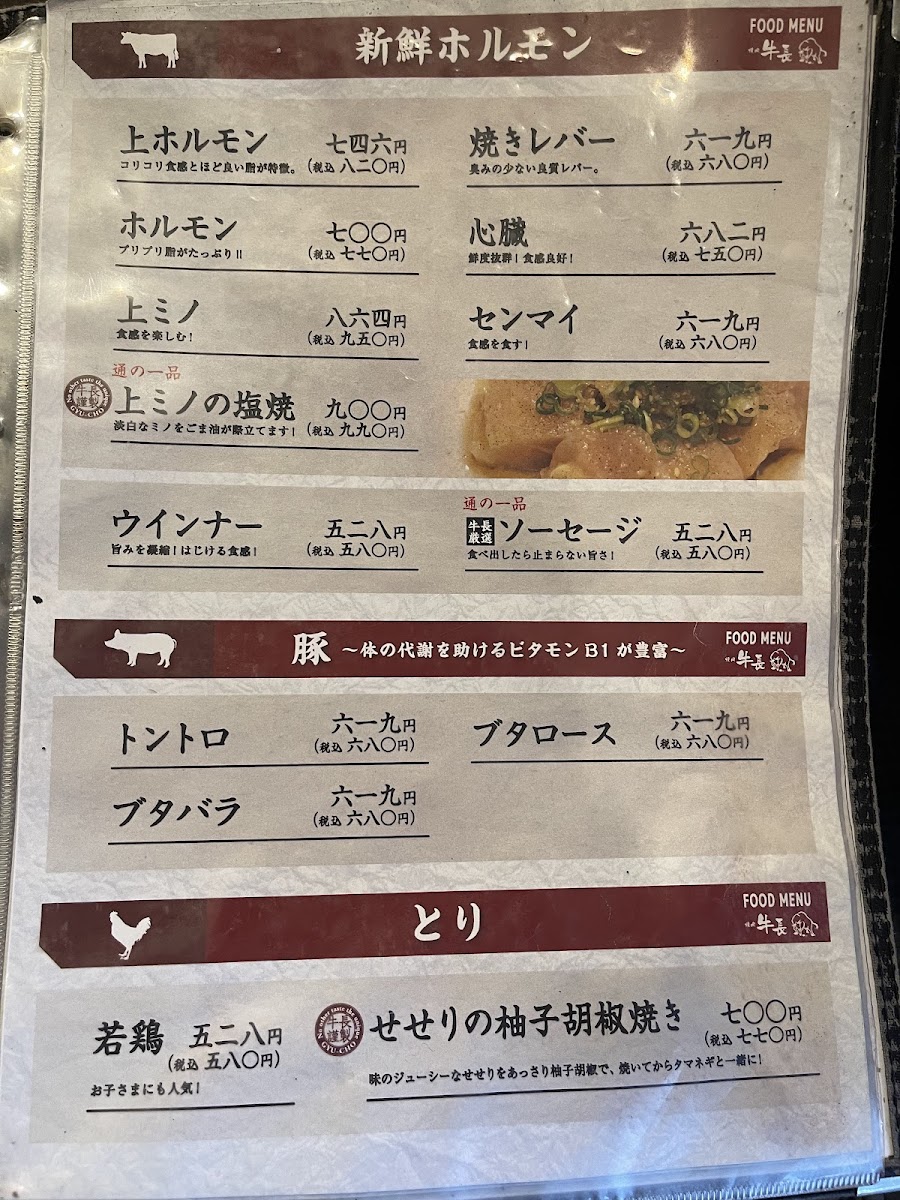 新鮮ホルモン
FOOD MENU
焼肉 牛長
上ホルモン 七四六円
コリコリ食感とほど良い脂が特徴。 (税込 八二〇円)
ホルモン 七〇〇円
プリプリ脂がたっぷり!! (税込 七七〇円)
上ミノ 八六四円
食感を楽しむ! (税込 九五〇円)
通の一品
No other taste the unique
牛長
謹製
GYU-CHO
上ミノの塩焼 九〇〇円
淡白なミノをごま油が際立てます! (税込 九九〇円)
焼きレバー 六一九円
臭みの少ない良質レバー。 (税込 六八〇円)
心臓 六八二円
鮮度抜群!食感良好! (税込 七五〇円)
センマイ 六一九円
食感を食す! (税込 六八〇円)
ウインナー 五二八円
旨みを凝縮!はじける食感! (税込 五八〇円)
通の一品
牛長
厳選
ソーセージ 五二八円
食べ出したら止まらない旨さ! (税込 五八〇円)
豚 ～体の代謝を助けるビタモンB1が豊富～
FOOD MENU
焼肉 牛長
トントロ 六一九円
(税込 六八〇円)
ブタロース 六一九円
(税込 六八〇円)
ブタバラ 六一九円
(税込 六八〇円)
とり
FOOD MENU
焼肉 牛長
若鶏 五二八円
(税込 五八〇円)
お子さまにも人気!
No other taste the unique
牛長
謹製
GYU-CHO
せせりの柚子胡椒焼き 七〇〇円
(税込 七七〇円)
味のジューシーなせせりをあっさり柚子胡椒で、焼いてからタマネギと一緒に!